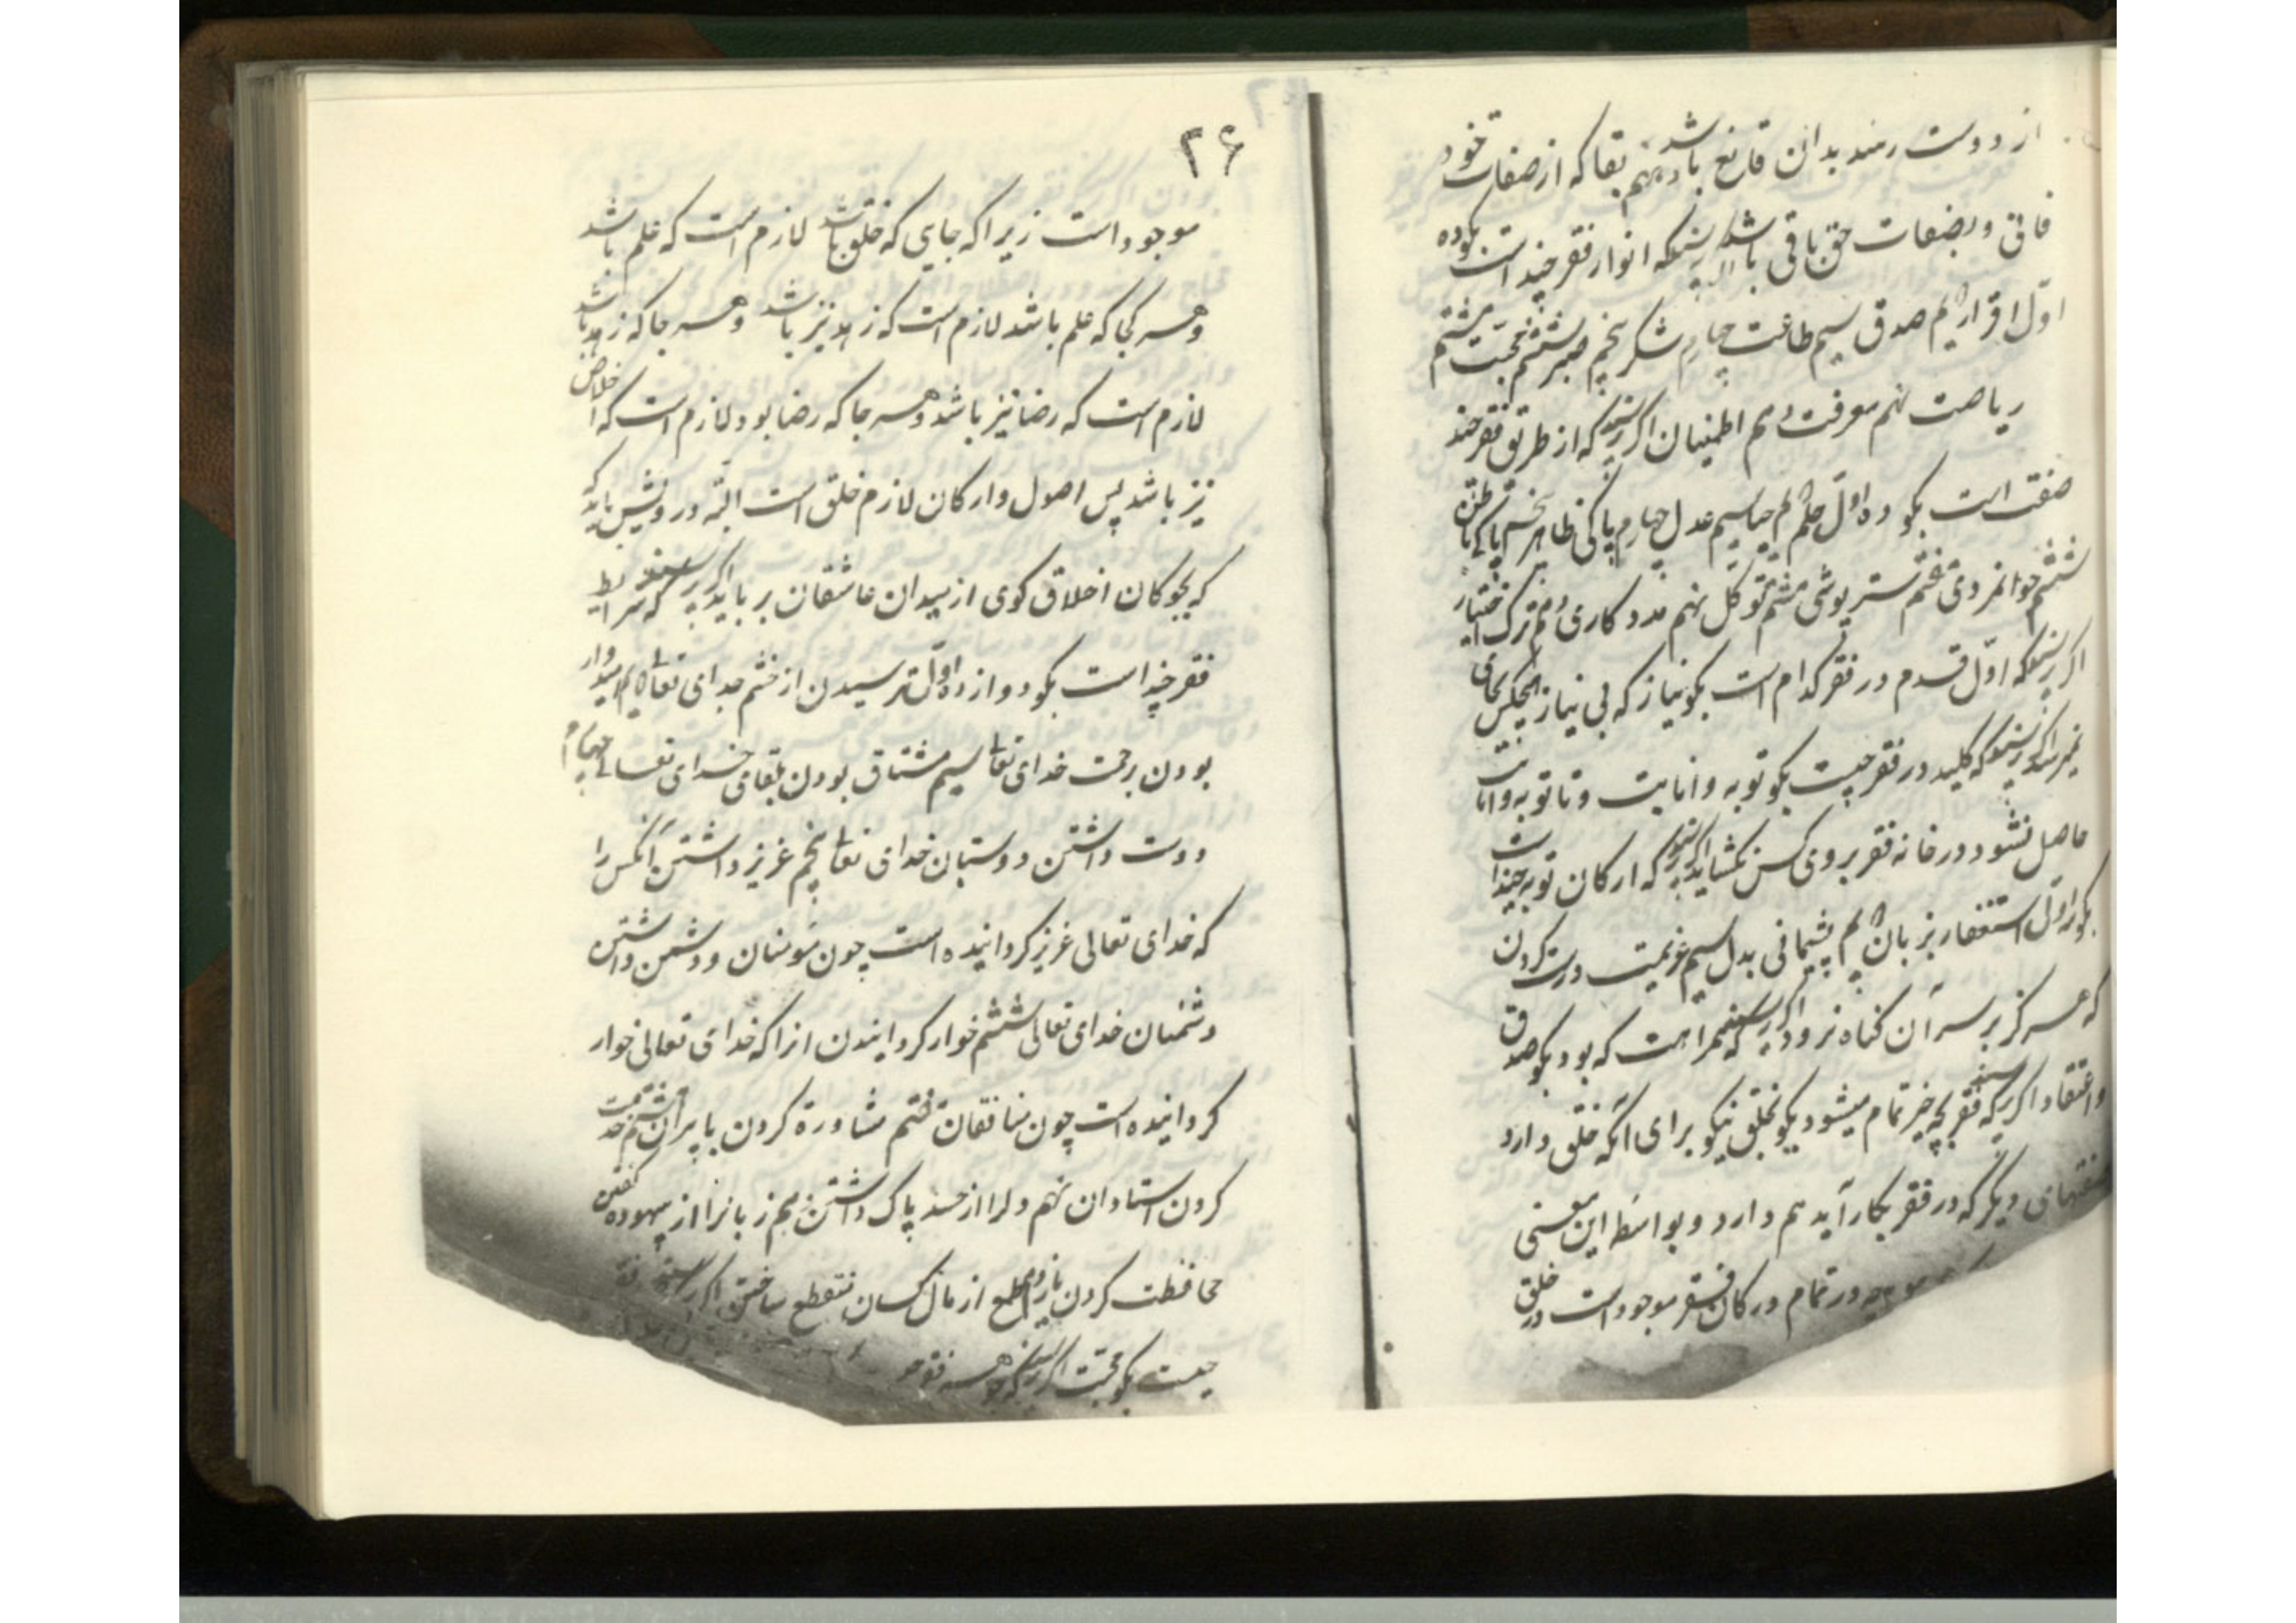 از دوست رسد بدان قانع باشد دهم بقا که از صفات خود
فانی و بصفات حق باقی باشد اگر پرسند که انوار فقر چند است بگو ده
اول اقرار دوم صدق سیم طاعت چهارم شکر پنجم صبر ششم محبت هشتم
ریاضت نهم معرفت دهم اطمینان اگر پرسند که از طریق فقر چند
صفت است بگو ده اول حلم دوم حیا سیم عدل چهارم پاکی ظاهر پنجم پاکی باطن
ششم جوانمردی هفتم ستر پوشی هشتم توکل نهم مددکاری دهم ترک اختیار
اگر پرسند که اول قدم در فقر کدام است بگو نیاز که بی نیاز هیچکس بجای
نمیرسد اگر پرسند که کلید در فقر چیست بگو توبه و انابت و تا توبه و انابت
حاصل نشود در خانه فقر بروی کس نگشاید اگر پرسند که ارکان توبه چند است
بگو اول استغفار بزبان دوم پشیمانی بدل سیم عزیمت درست کردن
که هرگز بر سر آن گناه نرود اگر پرسند که همراهت که بود بگو صدق
و اعتقاد اگر پرسند که فقر بچه چیز تمام میشود بگو بخلق نیکو برای آنکه خلق دارد
صفتهای دیگر که در فقر بکار آید هم دارد و بواسطه این معنی
هرچه در تمام در کان فقر موجود است در خلق
۲۶
موجود است زیرا که جایی که خلق باشد لازم است که علم باشد
و هر کجا که علم باشد لازم است که زهد نیز باشد و هر جا که زهد باشد
لازم است که رضا نیز باشد و هر جا که رضا بود لازم است که اخلاص
نیز باشد پس اصول و ارکان لازم خلق است البته درویش باید که
که بچوکان اخلاق گوی از میدان عاشقان برباید اگر پرسند که شرایط
فقر چند است بگو دوازده اول ترسیدن از خشم خدای تعالی دوم امیدوار
بودن برحمت خدای تعالی سیم مشتاق بودن بلقای خدای تعالی چهارم
دوست داشتن دوستان خدای تعالی پنجم عزیز داشتن آنکس را
که خدای تعالی عزیز کردانیده است چون مؤمنان و دشمن داشتن
دشمنان خدای تعالی ششم خوار کردانیدن انرا که خدای تعالی خوار
کردانیده است چون منافقان هفتم مشاورة کردن با پیران هشتم خدمت
کردن استادان نهم دلرا از حسد پاک داشتن دهم زبانرا از بیهوده گفتن
محافظت کردن یازدهم طمع از مال کسان منقطع ساختن اگر پرسند
چیست بگو محبت اگر پرسند که جوهر فقر